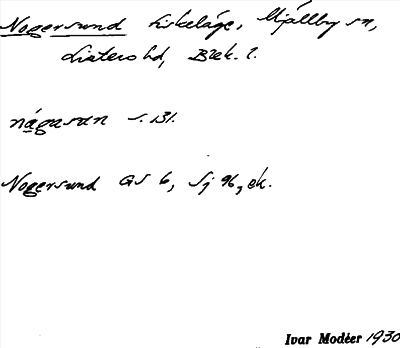 Nogersund fiskeläge, Mjällby sn,
Listers hd, Blek. l.
någasun s. 131.
Nogersund GS 6, Sj 96, ek.
Ivar Modéer 1930